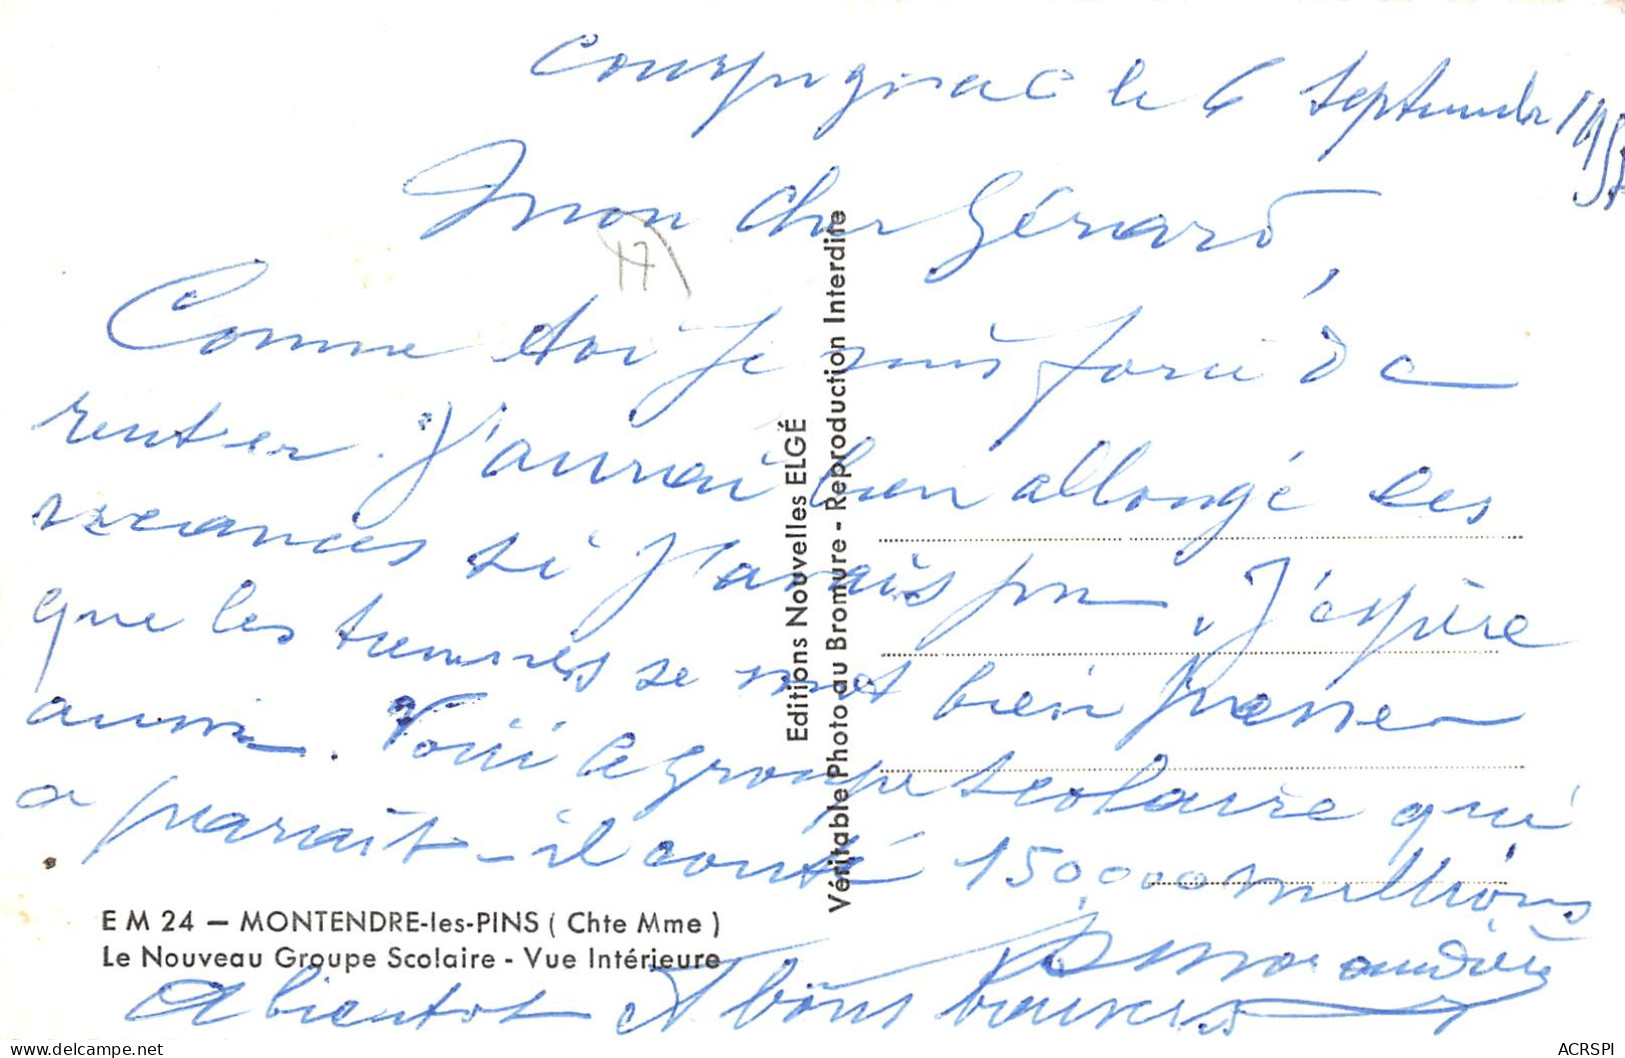 Courpignac le 6 Septembre 195
Mon cher Gérard,
17
Comme toi je suis forcé de
rentrer. J'aurai bien allongé les
vacances si j'avais pu. J'espère
que les tiennes se sont bien passées
aussi. Voici le groupe scolaire qui
a paraît-il couté 150.000 millions
A bientot et bons baisers
EM 24 — MONTENDRE-les-PINS ( Chte Mme )
Le Nouveau Groupe Scolaire - Vue Intérieure
Editions Nouvelles ELGÉ
Véritable Photo au Bromure - Reproduction Interdite
ACRSPI